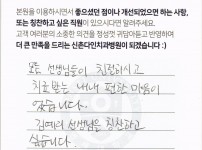 본원을 이용하시면서 좋으셨던 점이나 개선되었으면 하는 사항,
또는 칭찬하고 싶은 직원이 있으시다면 알려주세요.
고객 여러분의 소중한 의견을 정성껏 귀담아듣고 반영하여
더 큰 만족을 드리는 신촌다인치과병원이 되겠습니다 :)
모든 선생님들이 친절하시고
치료받는 내내 편한 마음이
었습니다.
김예리 선생님을 칭찬하고
싶습니다.